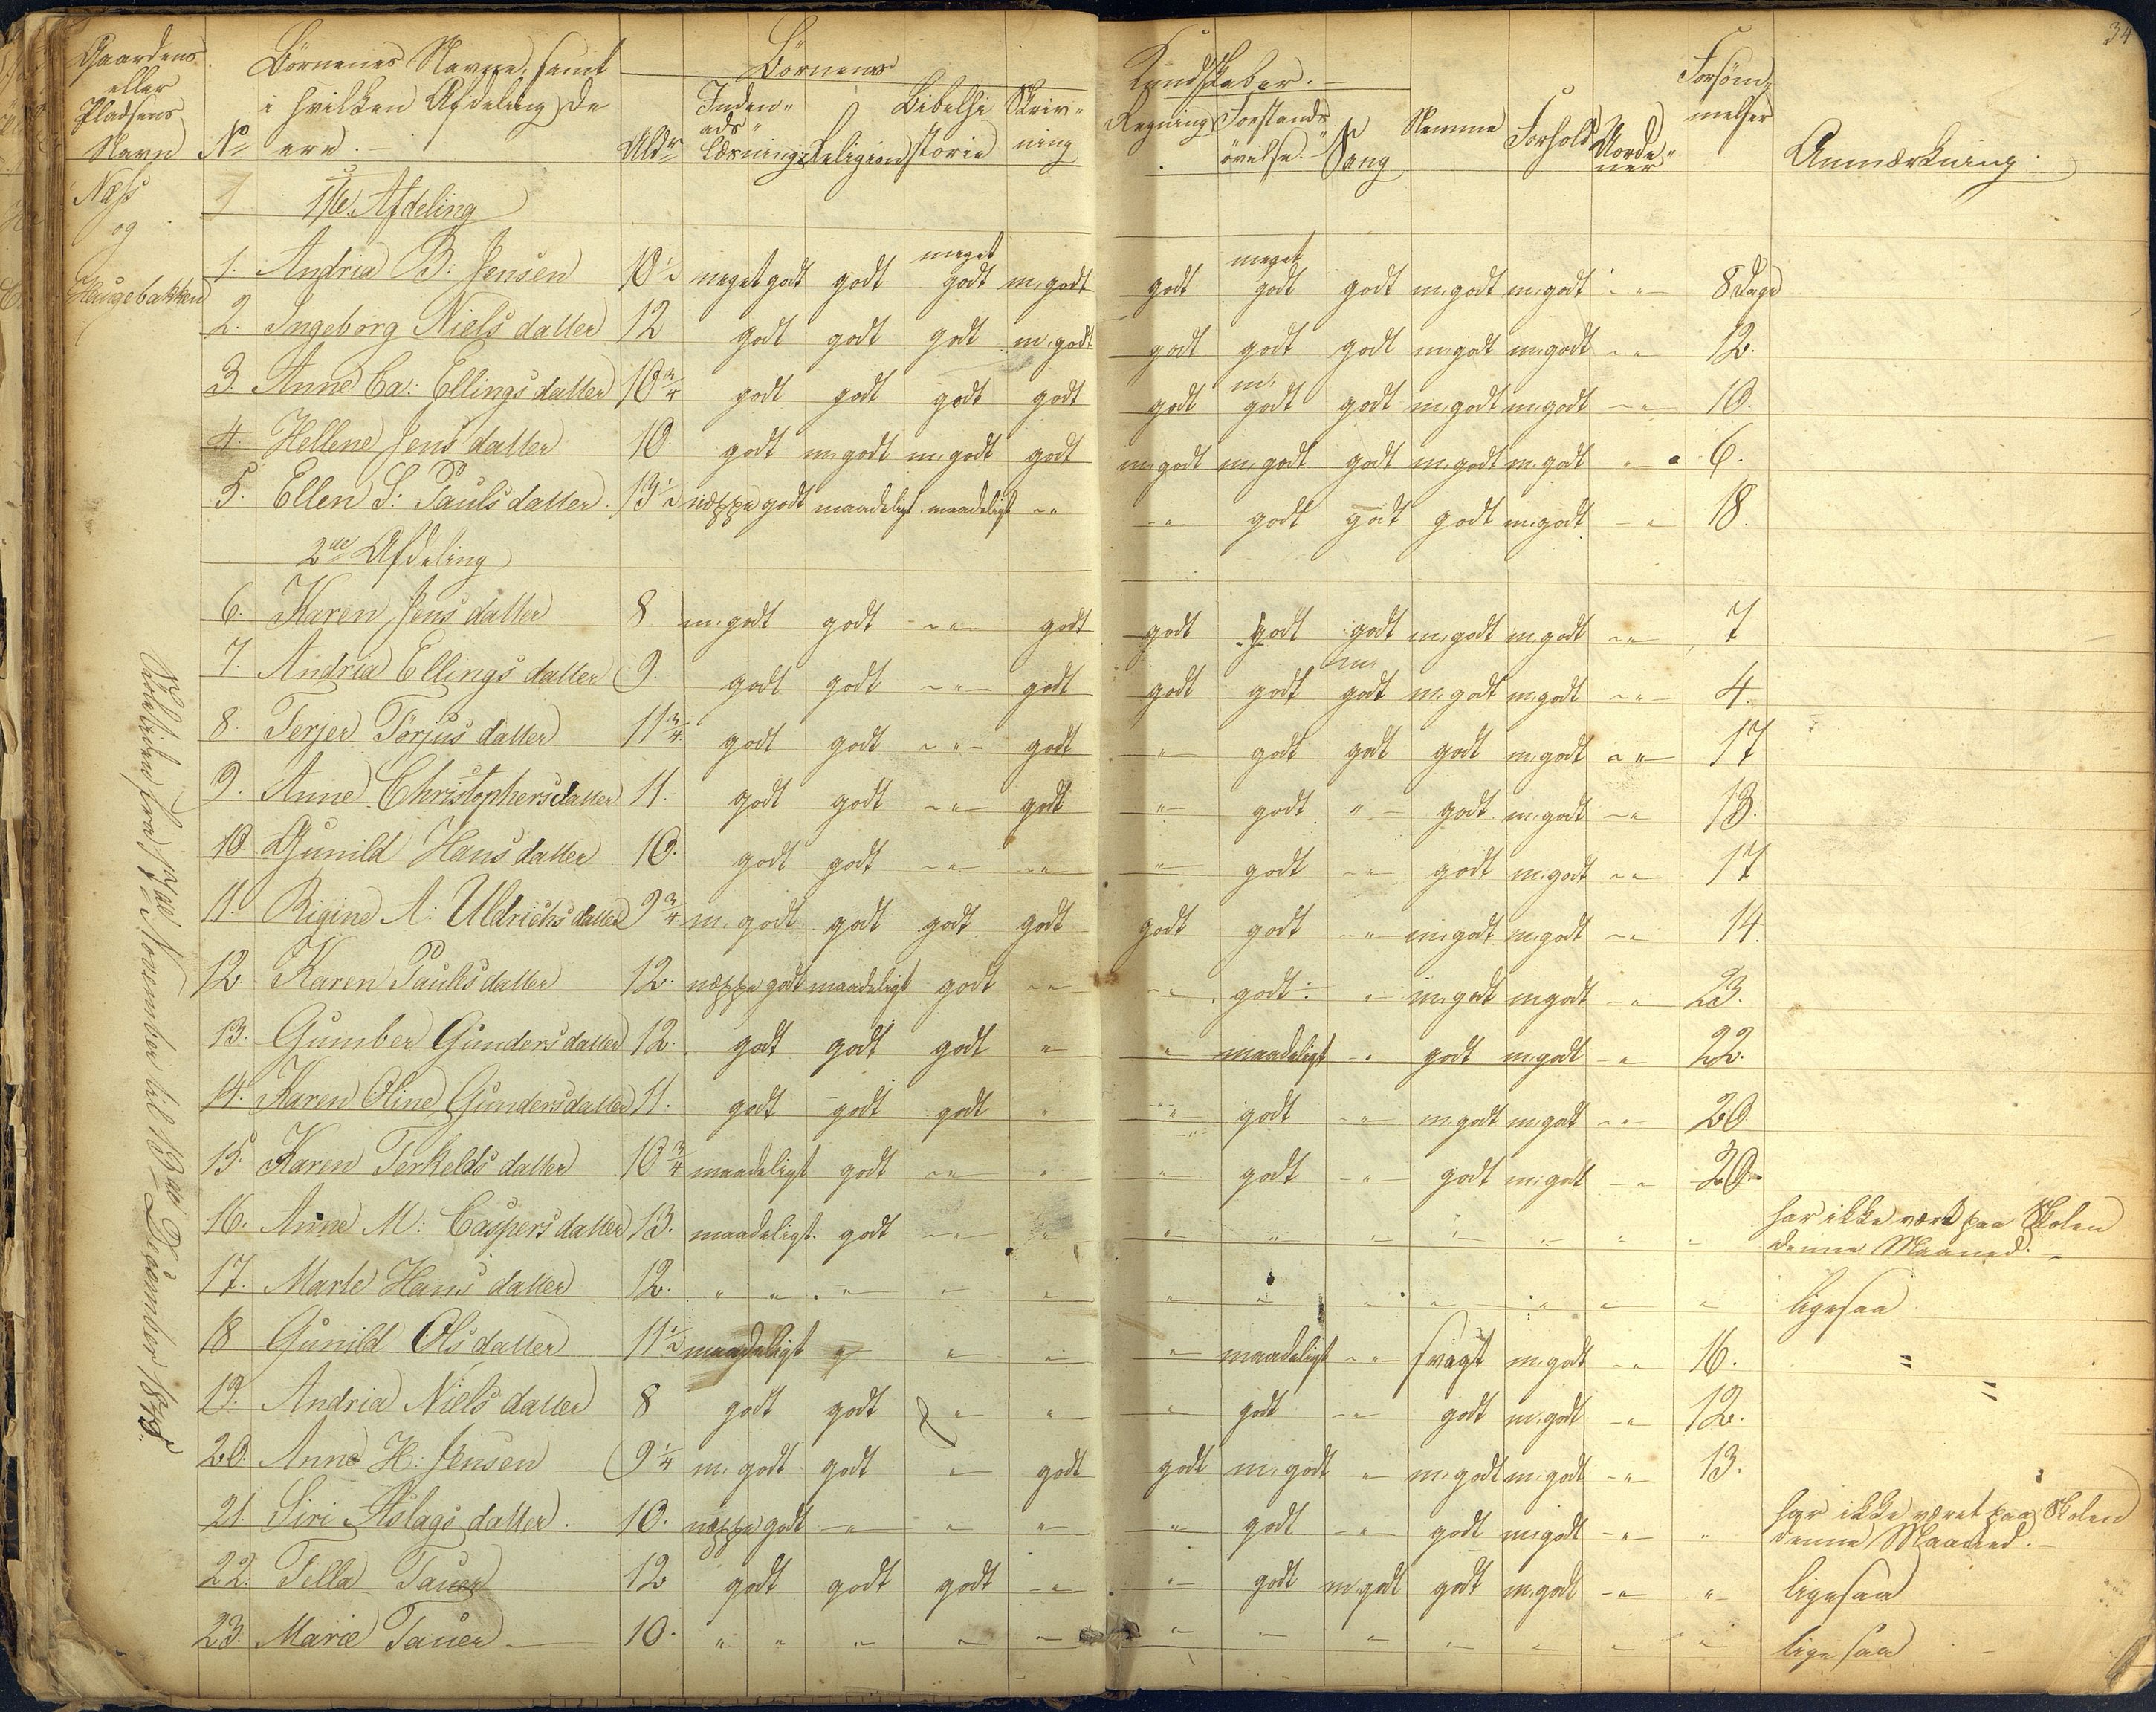 34
Gaardens eller Pladsens Navn
No
Börnenes Navne, samt i hvilken Afdeling de ere.
Aldr
Börnenes Kundskaber.
Inden- ads- Læsning
Religion
Bibelhistorie
Skrivning
Regning
Forstandsövelse.
Sang
Nemme
Forhold
Forsömmelser
Anmærkning.
Næs og Haugebakken
1ste Afdeling
1. Andria B: Jensen 10½ meget godt godt meget godt m. godt godt meget godt godt m. godt m. godt " 8 Dage
2. Ingeborg Niels datter 12 godt godt godt m. godt godt godt godt m. godt m. godt " 12.
3. Anne Ca: Ellings datter 10¾ godt godt godt godt godt m. godt godt m. godt m. godt " 10.
4. Hellene Jens datter 10 godt m. godt m. godt godt m. godt m. godt godt m. godt m. godt " 6.
5. Ellen S: Pauls datter. 13½ neppe godt maadeligt maadeligt " " godt godt godt m. godt " 18.
2de Afdeling
6. Karen Jens datter 8 m. godt godt " godt godt godt godt m. godt m. godt " 7
7. Andria Ellings datter 9. godt godt " godt godt godt m. godt m. godt m. godt " 4.
8. Terjer Törjus datter 11¾ godt godt " godt " godt godt godt m. godt " 17
9. Anne Christophersdatter 11. godt godt " godt " godt " godt m. godt " 13.
10. Gunild Hans datter 10. godt godt " " " godt " godt m. godt " 17
11. Rigine A: Uldrichs datter 9¾ m. godt godt godt godt godt godt " m. godt m. godt " 14.
12. Karen Pauls datter 12. neppe godt maadeligt godt " " godt " m. godt m. godt " 23.
13. Gumber Gunders datter 12. godt godt godt " " maadeligt " godt m. godt " 22.
14. Karen Oline Gundersdatter 11. godt godt godt " " godt " m. godt m. godt " 20
15. Karen Terkelds datter 10¾ maadeligt godt " " " godt " godt m. godt " 20
16. Anne M: Caspers datter 13. maadeligt. godt " " " " " " " " " har ikke vært paa Skolen denne Maaned.
17. Marte Hans datter 12. " " " " " " " " " " " ligesaa
18 Gunild Ols datter 11½ maadeligt " " " " maadeligt " svagt m. godt " 16. "
19. Andria Niels datter 8 godt godt " " " godt " godt m. godt " 12. "
20. Anne H: Jensen 9¼ m. godt godt " godt godt m. godt " m. godt m. godt " 13.
21. Siri Aslags datter. 10. neppe godt " " " " godt " godt m. godt " " har ikke været paa Skolen denne Maaned.
22. Tella Tauer 12 godt godt godt " " godt m. godt godt m. godt " " ligesaa
23. Marie Tauer 10. " " " " " " " " " " " ligesaa
fra 17de November til 18de December 1848.